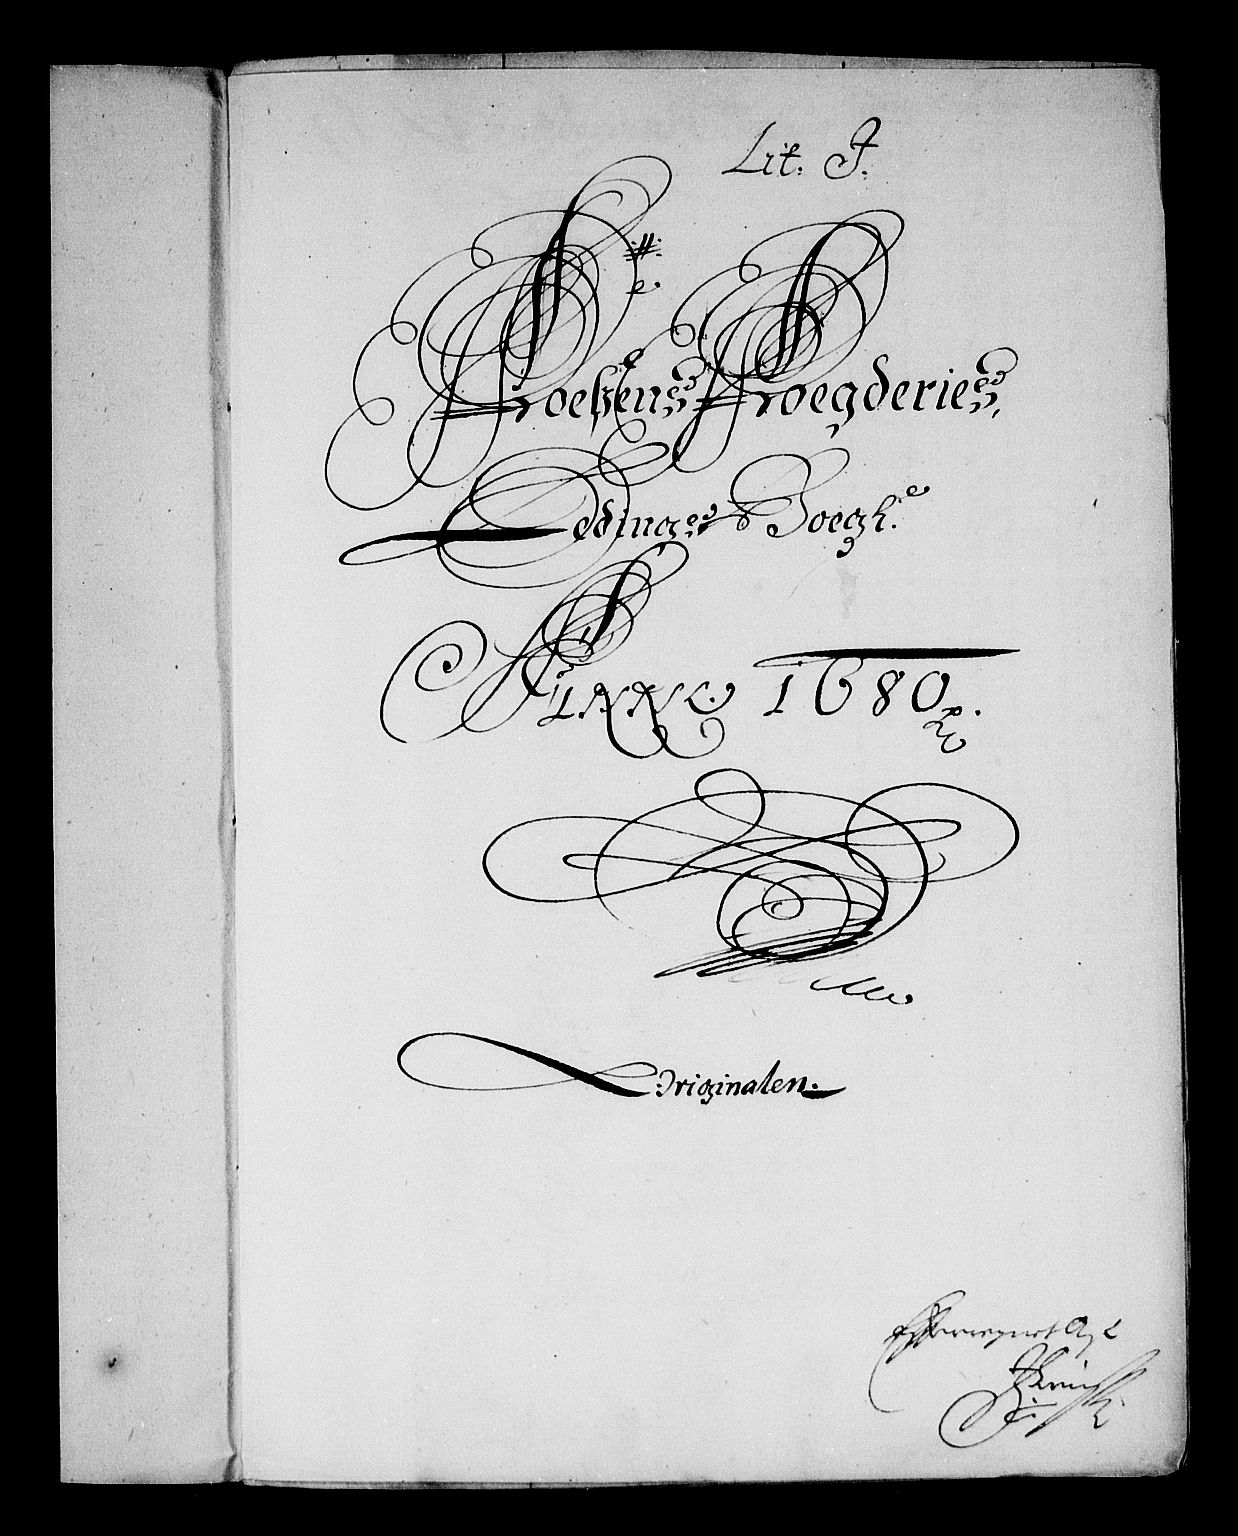 Lit. J.
Foeßens Foegderies
Ædings Boegh.
ANNO 1680
Originalen.